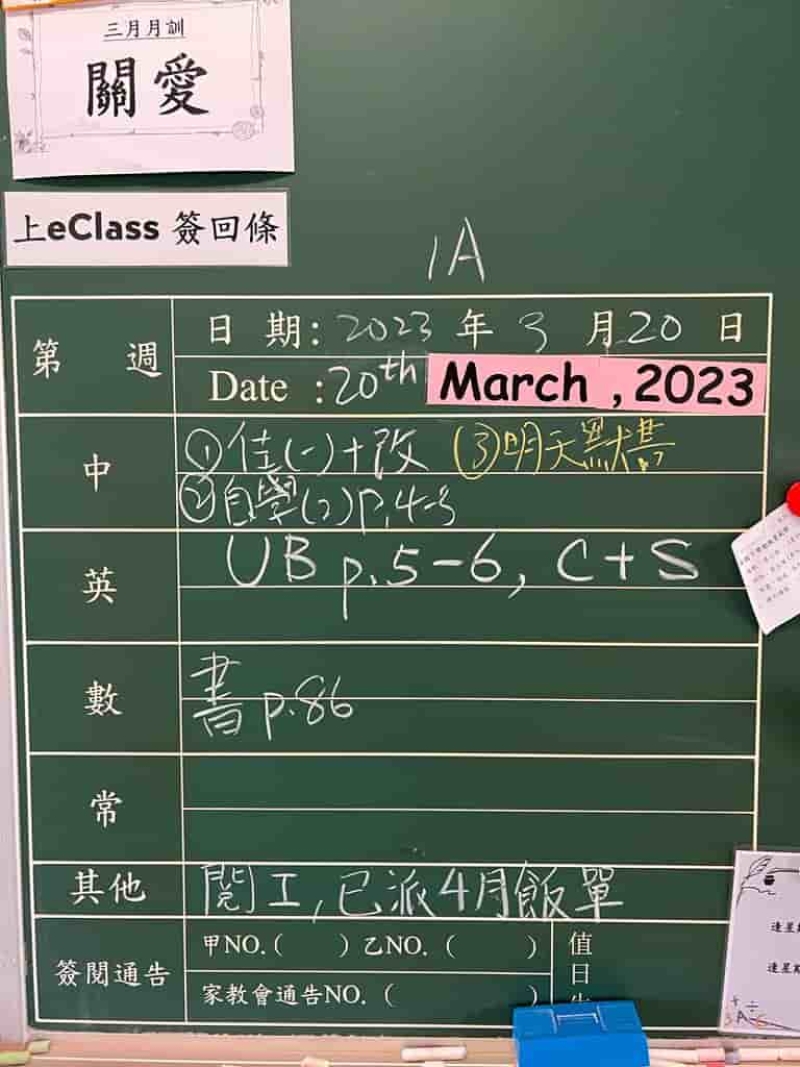 三月月訓
關愛
上eClass 簽回條
1A
第 週
日 期: 2023 年 3 月 20 日
Date : 20th March , 2023
中
①佳(一)+改 (3)明天默書
②自學(2)P.4-5
英
UB p.5-6, C+S
數
書 p.86
常
其他
閱工,已派4月飯單
簽閱通告
甲NO.( ) 乙NO. ( )
家教會通告NO. ( )
值
日
逢星
逢星